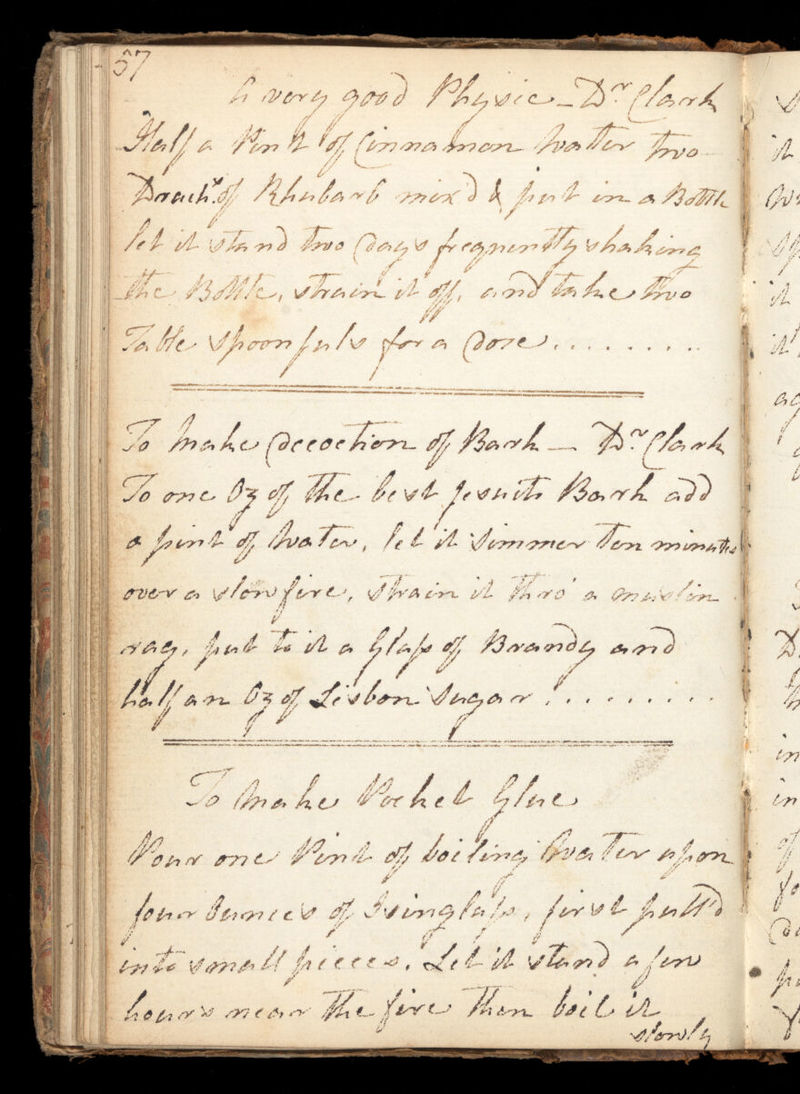 57
A very good Physic - Dr Clark
Half a Pint of Cinnamon Water two
Drachs. of Rhubarb mix'd & put in a Bottle
let it stand two Days frequently shaking
the Bottle, strain it off, and take two
Table spoonfuls for a Dose.........
To Make Decoction of Bark - Dr Clark
To one Oz of the best Jesuits Bark add
a pint of Water, let it simmer ten minutes
over a slow fire, strain it thro' a muslin
rag, put to it a Glass of Brandy and
half an Oz of Lisbon Sugar.........
To Make Pocket Glue
Pour one Pint of boiling Water upon
four Ounces of Isinglass, first pull'd
into small pieces. Let it stand a few
hours near the fire then boil it
slowly